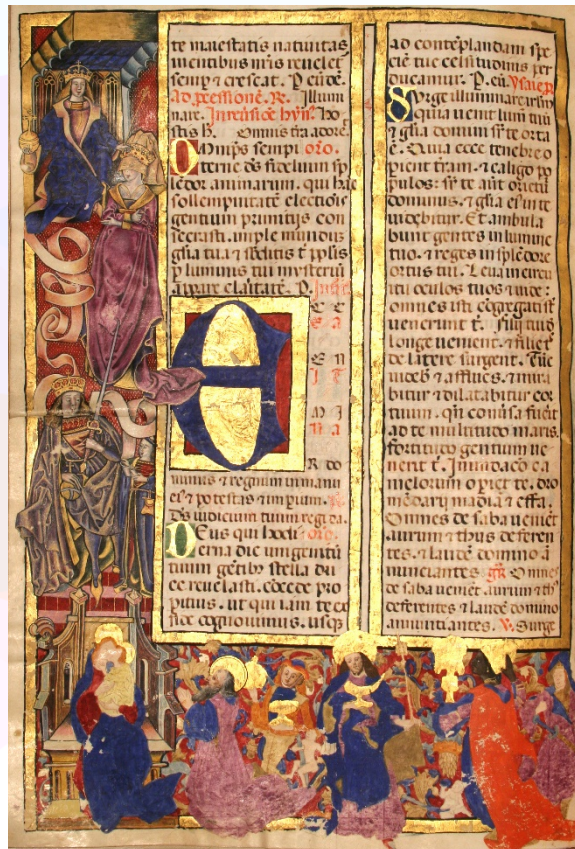 te maiestatis natiuitas
mentibus nr̄is reuelet
semp̄ ⁊ crescat. P. eūdē.
Ad p̱cessionē. R. Illumi
nare. In reuersiōe hyn̄. ho
stis h. Omnis t̄ra adoret
Omnip̄s sempi oro.
terne d̄s fidelium sp̄
lēdor animarum. qui hāc
sollempnitatē electiōis
gentium primitijs con
secrasti. imple mundū
gl̄ia tua ⁊ sb̄ditis t̄ pp̄lis
p̱ luminis tui mysteriū
appare claritatē. P.
E
C C
E N
I T
R do
minus ⁊ regnum ī manu
ei⁹ ⁊ potestas ⁊ imperium.
D̄s iudicium tuum regi da.
Deus qui hodi oro
erna die unigenitū
tuum gētib⁹ stella du
ce reuelasti. cōcede pro
pitius. ut qui iam te ex
fide cognouimus. usq₃
ad contēplandam spe
ciē tue celsitudinis per
ducamur. P. eū. Ysaie p̱
Surge illuminare ierl̄m
quia uenit lumē tuū
⁊ gl̄ia domini sr̄ te orta
ē. Quia ecce tenebre o
perient t̄ram. ⁊ caligo po
pulos: sr̄ te aūt orietur
dominus. ⁊ gl̄ia ei⁹ in te
uidebitur. Et ambula
bunt gentes in lumine
tuo. ⁊ reges in splēdore
ortus tui. Leua in circu
itu oculos tuos ⁊ uide:
omnes isti cōgregati sūt
uenerunt t̄. filij tui d̄
longe uenient. ⁊ filie t̄
de latere surgent. Tūc
uideb̄ ⁊ afflues. ⁊ mira
bitur ⁊ dilatabitur cor
tuum. qn̄ conūsa fuerit
ad te multitudo maris.
fortitudo gentium ue
nerit t̄. Inundacō ca
melorum operiet te. dro
medarij madiā ⁊ effa.
Omnes de saba ueniēt
aurum ⁊ thus deferen
tes. ⁊ laudē domino ā
nunciantes. gr̄. Omnes
de saba ueniēt. aurum ⁊ th⁹
deferentes ⁊ laudē domino
annunciantes. V. Surge